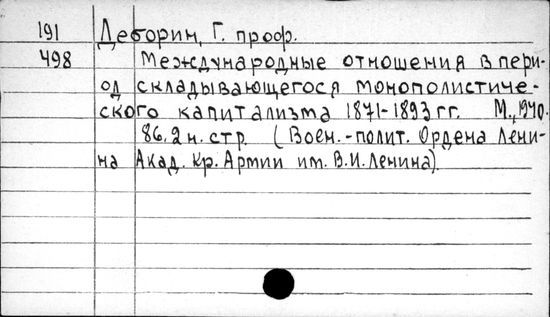 191 Деборин, Г. проф.
498 Международные отношения в пери-
од складывающегося монополистиче-
ского капитализма 1871-1893 гг. М., 1940.
86.2 н. стр. (Воен.-полит. Ордена Лени-
на Акад. Кр. Армии им. В.И. Ленина).